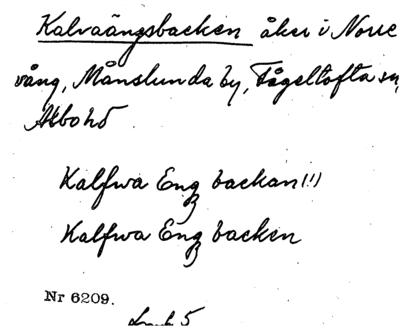 Kalvaängsbacken åker i Norre
vång, Månslunda by, Fågeltofta sn,
Albo hd
Kalfwa Engz backan (!)
Kalfwa Engz backen
Nr 6209.
5